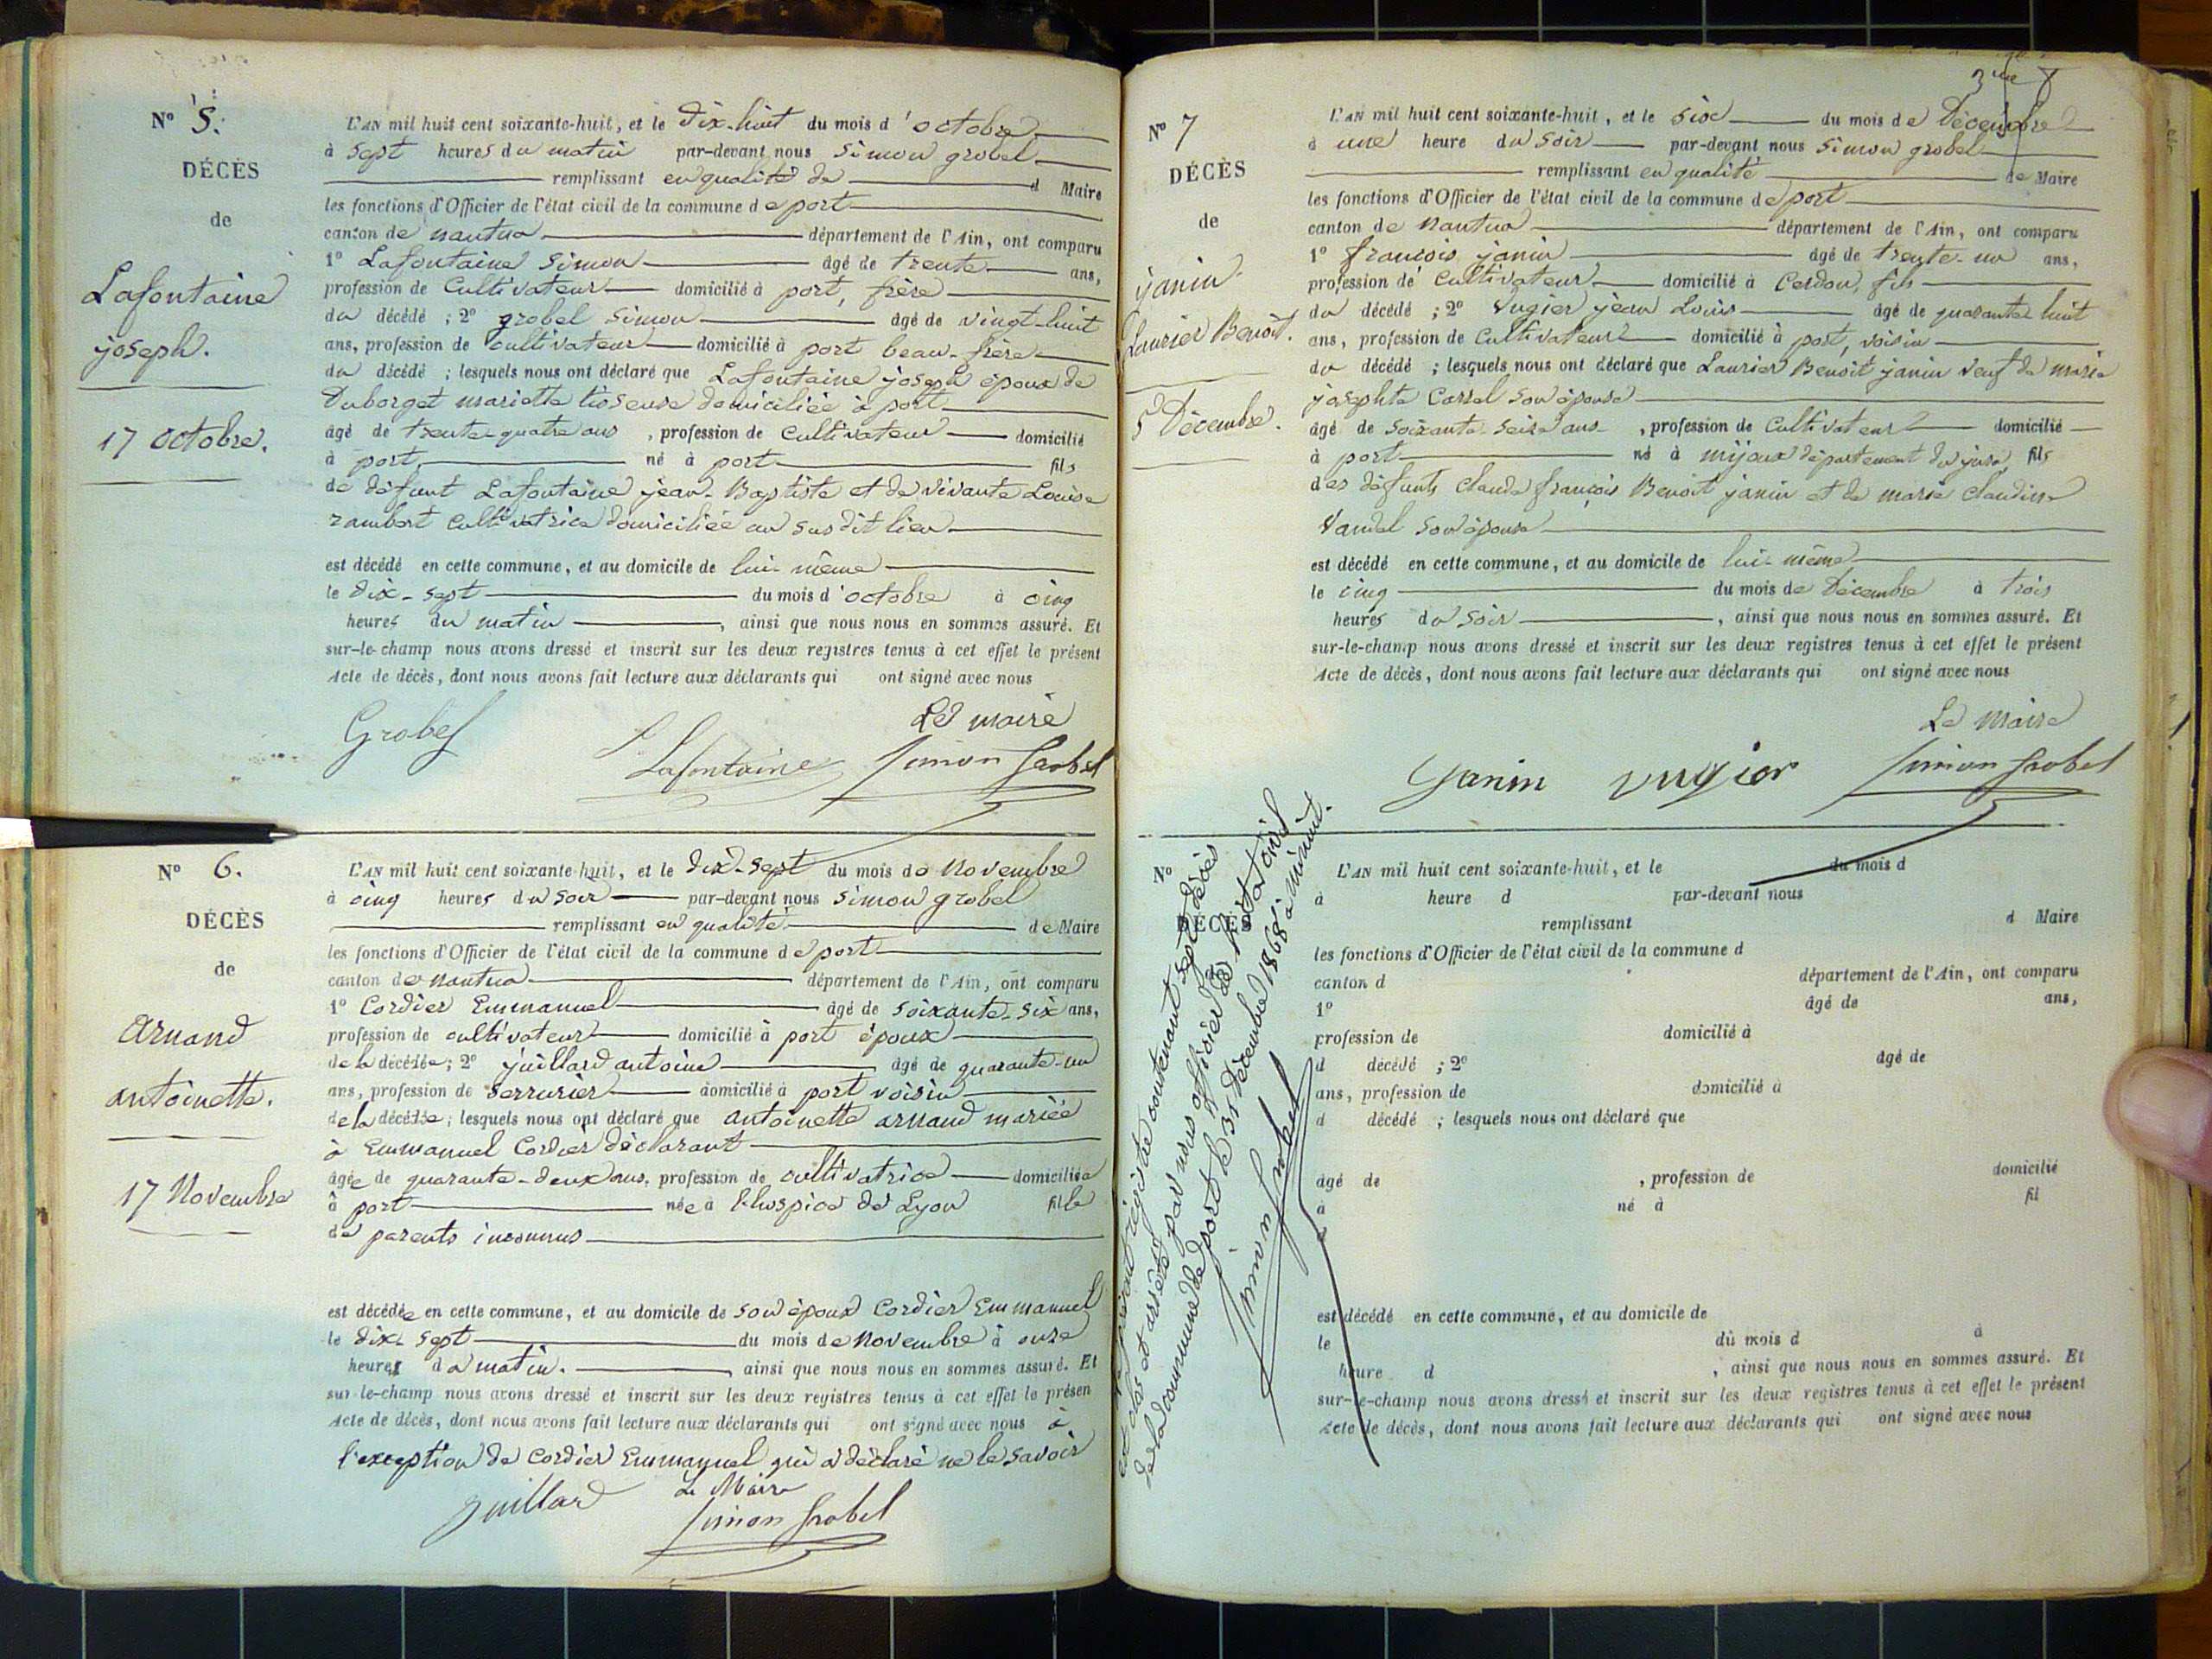 N° 5.
DÉCÈS
de
Lafontaine
joseph.
17 octobre.
L'AN mil huit cent soixante-huit, et le dix-huit du mois d'octobre
à sept heures du matin par-devant nous simon grobel
remplissant en qualité de d Maire
les fonctions d'Officier de l'état civil de la commune de port
canton de nantua département de l'Ain, ont comparu
1° Lafontaine simon âgé de trente ans,
profession de Cultivateur domicilié à port, frère
du décédé ; 2° grobel simon âgé de vingt-huit
ans, profession de cultivateur domicilié à port beau-frère
du décédé ; lesquels nous ont déclaré que Lafontaine joseph époux de
Duborget mariette domiciliée à port
âgé de trente-quatre ans , profession de Cultivateur domicilié
à port né à port fils
de défunt Lafontaine jean-Baptiste et de vivante Louise
rambert cultivatrice domiciliée au susdit lieu
est décédé en cette commune, et au domicile de lui-même
le dix-sept du mois d'octobre à cinq
heures du matin , ainsi que nous nous en sommes assuré. Et
sur-le-champ nous avons dressé et inscrit sur les deux registres tenus à cet effet le présent
Acte de décès, dont nous avons fait lecture aux déclarants qui ont signé avec nous
Le maire
Grobel Lafontaine Simon Grobel
N° 6.
DÉCÈS
de
arnand
antoinette.
17 Novembre
L'AN mil huit cent soixante-huit, et le dix-sept du mois de Novembre
à cinq heures du soir par-devant nous simon grobel
remplissant en qualité de Maire
les fonctions d'Officier de l'état civil de la commune de port
canton de nantua département de l'Ain, ont comparu
1° Cordier Emmanuel âgé de soixante-six ans,
profession de cultivateur domicilié à port époux
de la décédée; 2° juillard antoine âgé de quarante-un
ans, profession de serrurier domicilié à port voisin
de la décédée; lesquels nous ont déclaré que antoinette arnaud mariée
à Emmanuel Cordier déclarant
âgée de quarante-deux ans, profession de cultivatrice domiciliée
à port née à l'hospice de Lyon fille
de parents inconnus
est décédée en cette commune, et au domicile de son époux Cordier Emmanuel
le dix-sept du mois de Novembre à onze
heures du matin. , ainsi que nous nous en sommes assuré. Et
sur-le-champ nous avons dressé et inscrit sur les deux registres tenus à cet effet le présen
Acte de décès, dont nous avons fait lecture aux déclarants qui ont signé avec nous à
l'exception de Cordier Emmanuel qui a déclaré ne le savoir
Le Maire
Juillard Simon Grobel
N° 7
DÉCÈS
de
janin
Laurier Benoit.
5 Décembre.
L'AN mil huit cent soixante-huit, et le six du mois de Décembre
à une heure du soir par-devant nous simon grobel
remplissant en qualité de Maire
les fonctions d'Officier de l'état civil de la commune de port
canton de nantua département de l'Ain, ont comparu
1° françois janin âgé de trente-un ans,
profession de cultivateur domicilié à Cerdon, fils
du décédé ; 2° Vugier jean Louis âgé de quarante huit
ans, profession de Cultivateur domicilié à port, voisin
du décédé ; lesquels nous ont déclaré que Laurier Benoit janin veuf de marie
josephte Carrel son épouse
âgé de soixante-seize ans , profession de Cultivateur domicilié
à port né à mijoux département du jura, fils
des défunts Claude françois Benoit janin et de marie claudine
Vandel son épouse
est décédé en cette commune, et au domicile de lui-même
le cinq du mois de Décembre à trois
heures du soir , ainsi que nous nous en sommes assuré. Et
sur-le-champ nous avons dressé et inscrit sur les deux registres tenus à cet effet le présent
Acte de décès, dont nous avons fait lecture aux déclarants qui ont signé avec nous
Le maire
Janin Vugier Simon Grobel
N°
DÉCÈS
le présent registre contenant sept décès
est clos et arrêté par nous officier de l'état civil
de la commune de port le 31 décembre 1868 à minuit.
Simon Grobel
L'AN mil huit cent soixante-huit, et le du mois d
à heure d par-devant nous
remplissant d Maire
les fonctions d'Officier de l'état civil de la commune d
canton d département de l'Ain, ont comparu
1° âgé de ans,
profession de domicilié à
d décédé ; 2° âgé de
ans, profession de domicilié à
d décédé ; lesquels nous ont déclaré que
âgé de , profession de domicilié
à né à fil
est décédé en cette commune, et au domicile de
le du mois d à
heure d , ainsi que nous nous en sommes assuré. Et
sur-le-champ nous avons dressé et inscrit sur les deux registres tenus à cet effet le présent
Acte de décès, dont nous avons fait lecture aux déclarants qui ont signé avec nous